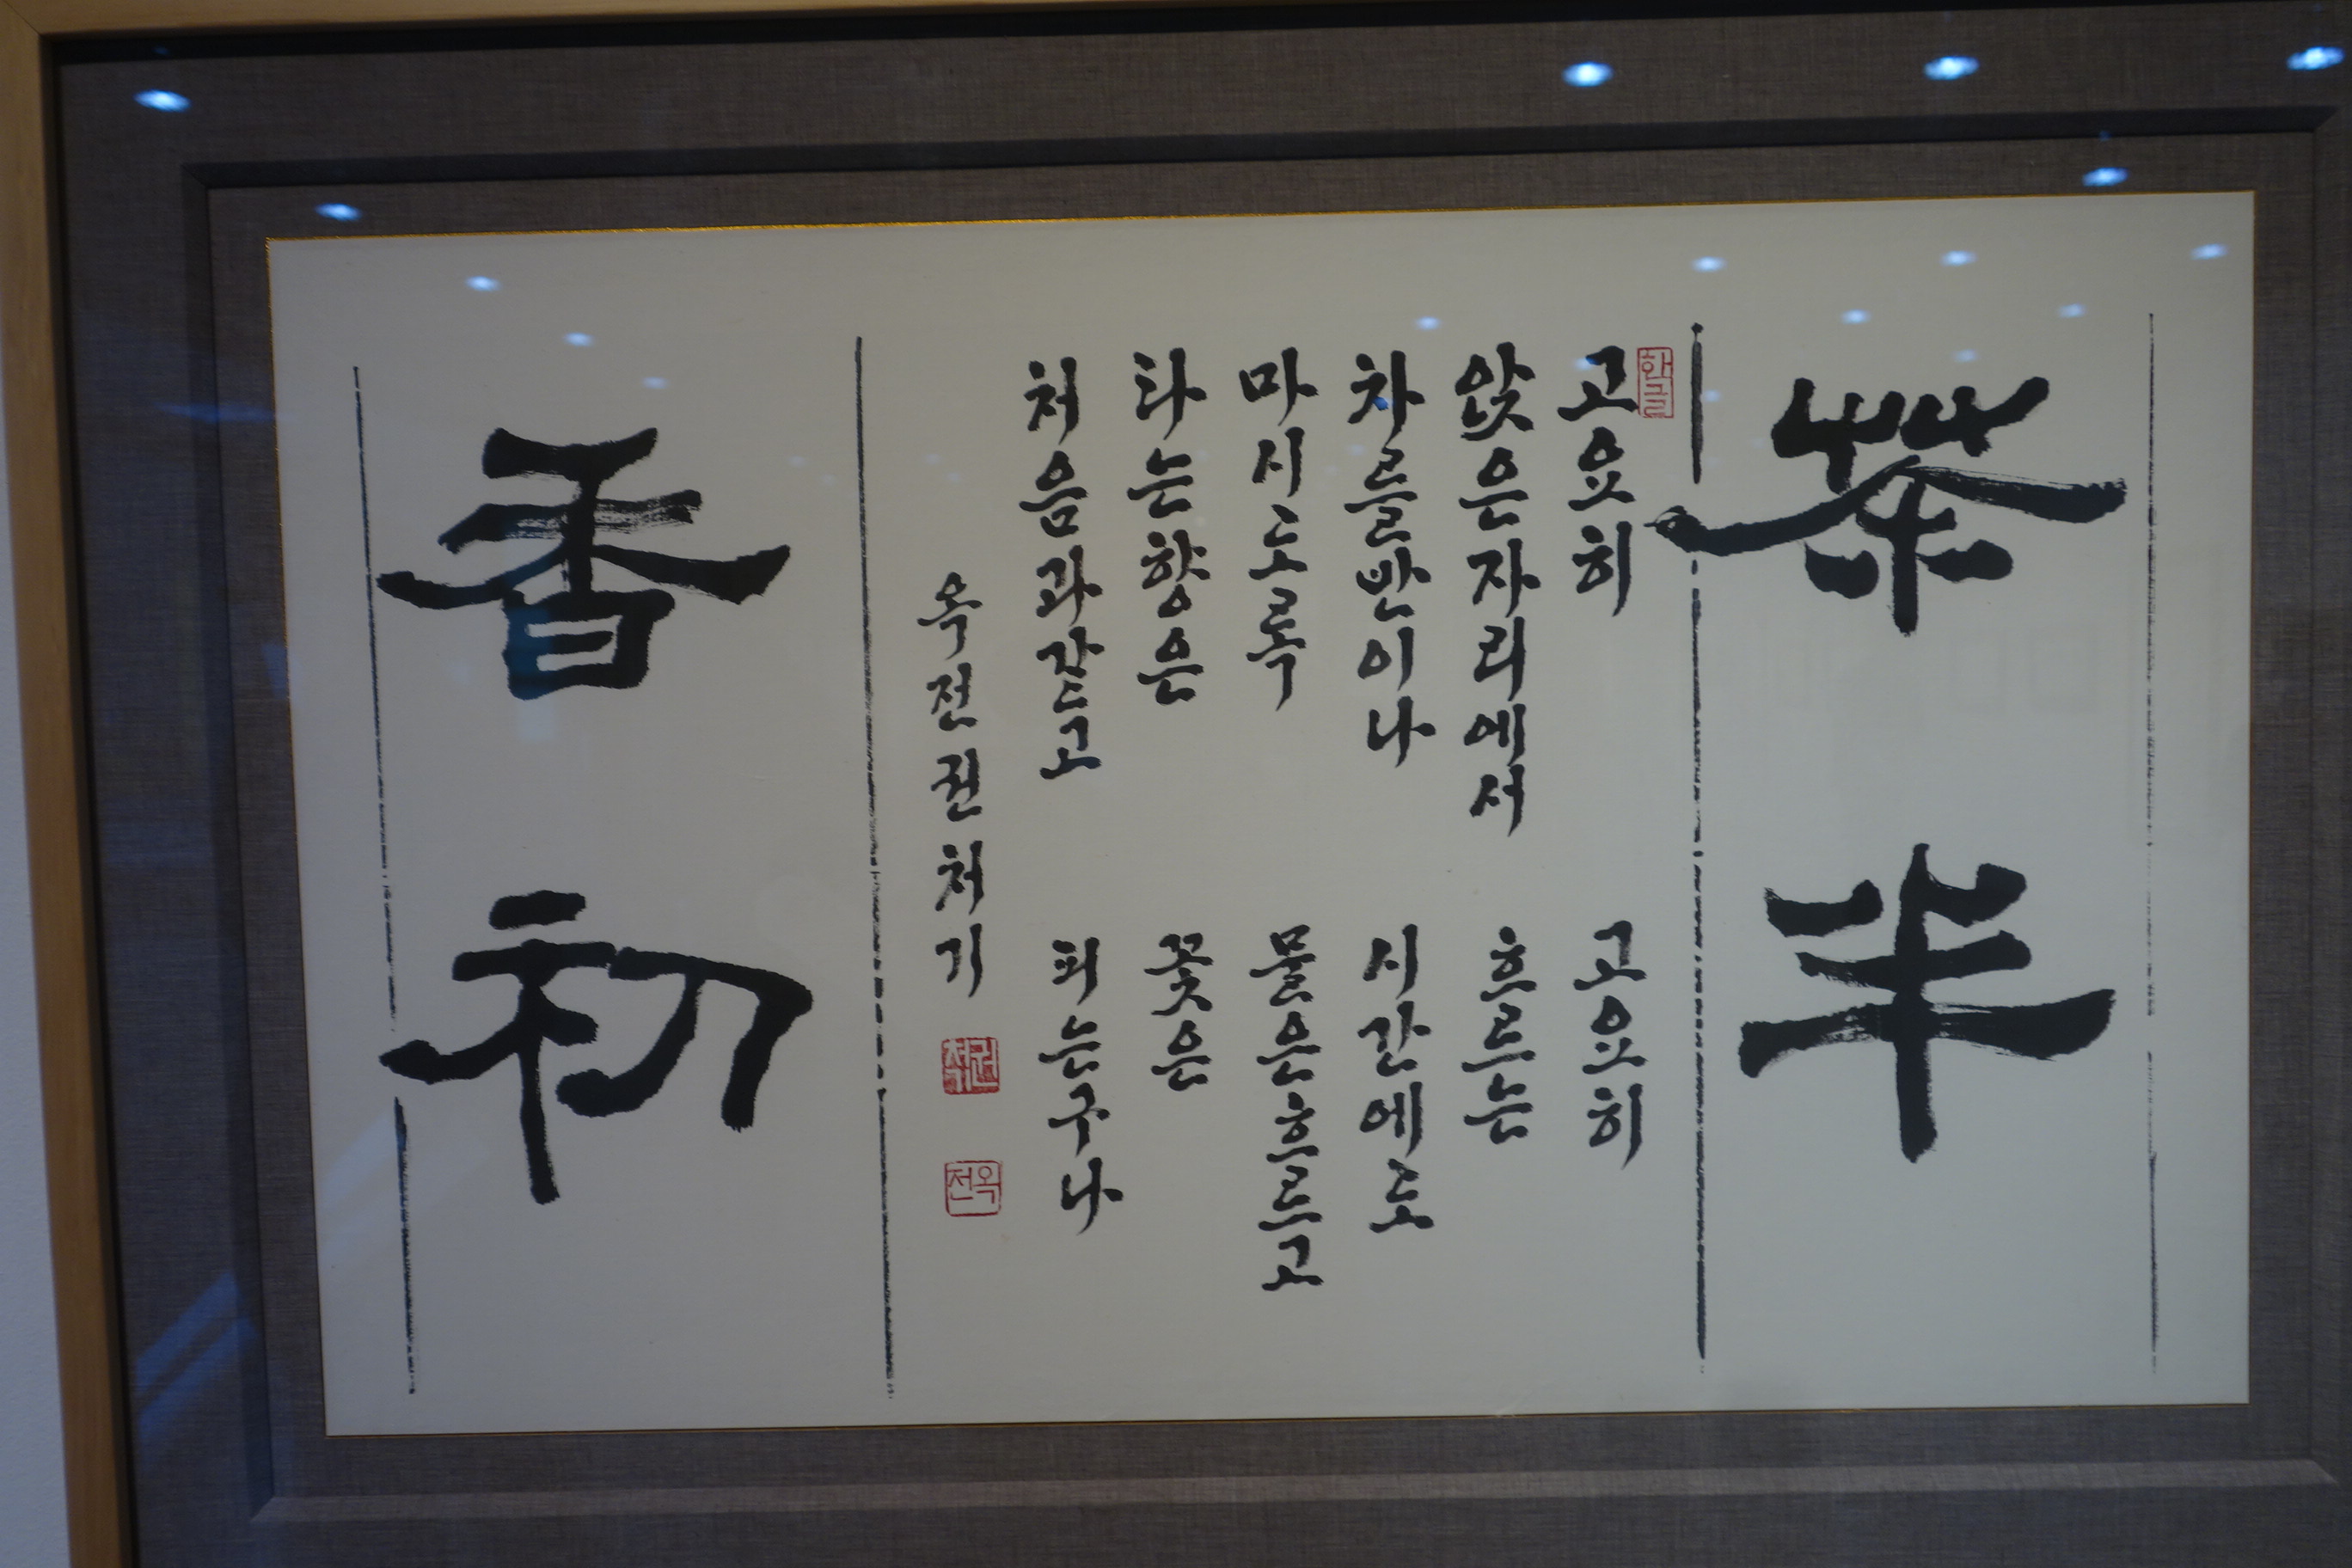 茶半
한글
고요히
앉은자리에서
차를반이나
마시도록
타는향은
처음과같고
고요히
흐르는
시간에도
물은흐르고
꽃은
피는구나
옥전권처기
옥전
香初